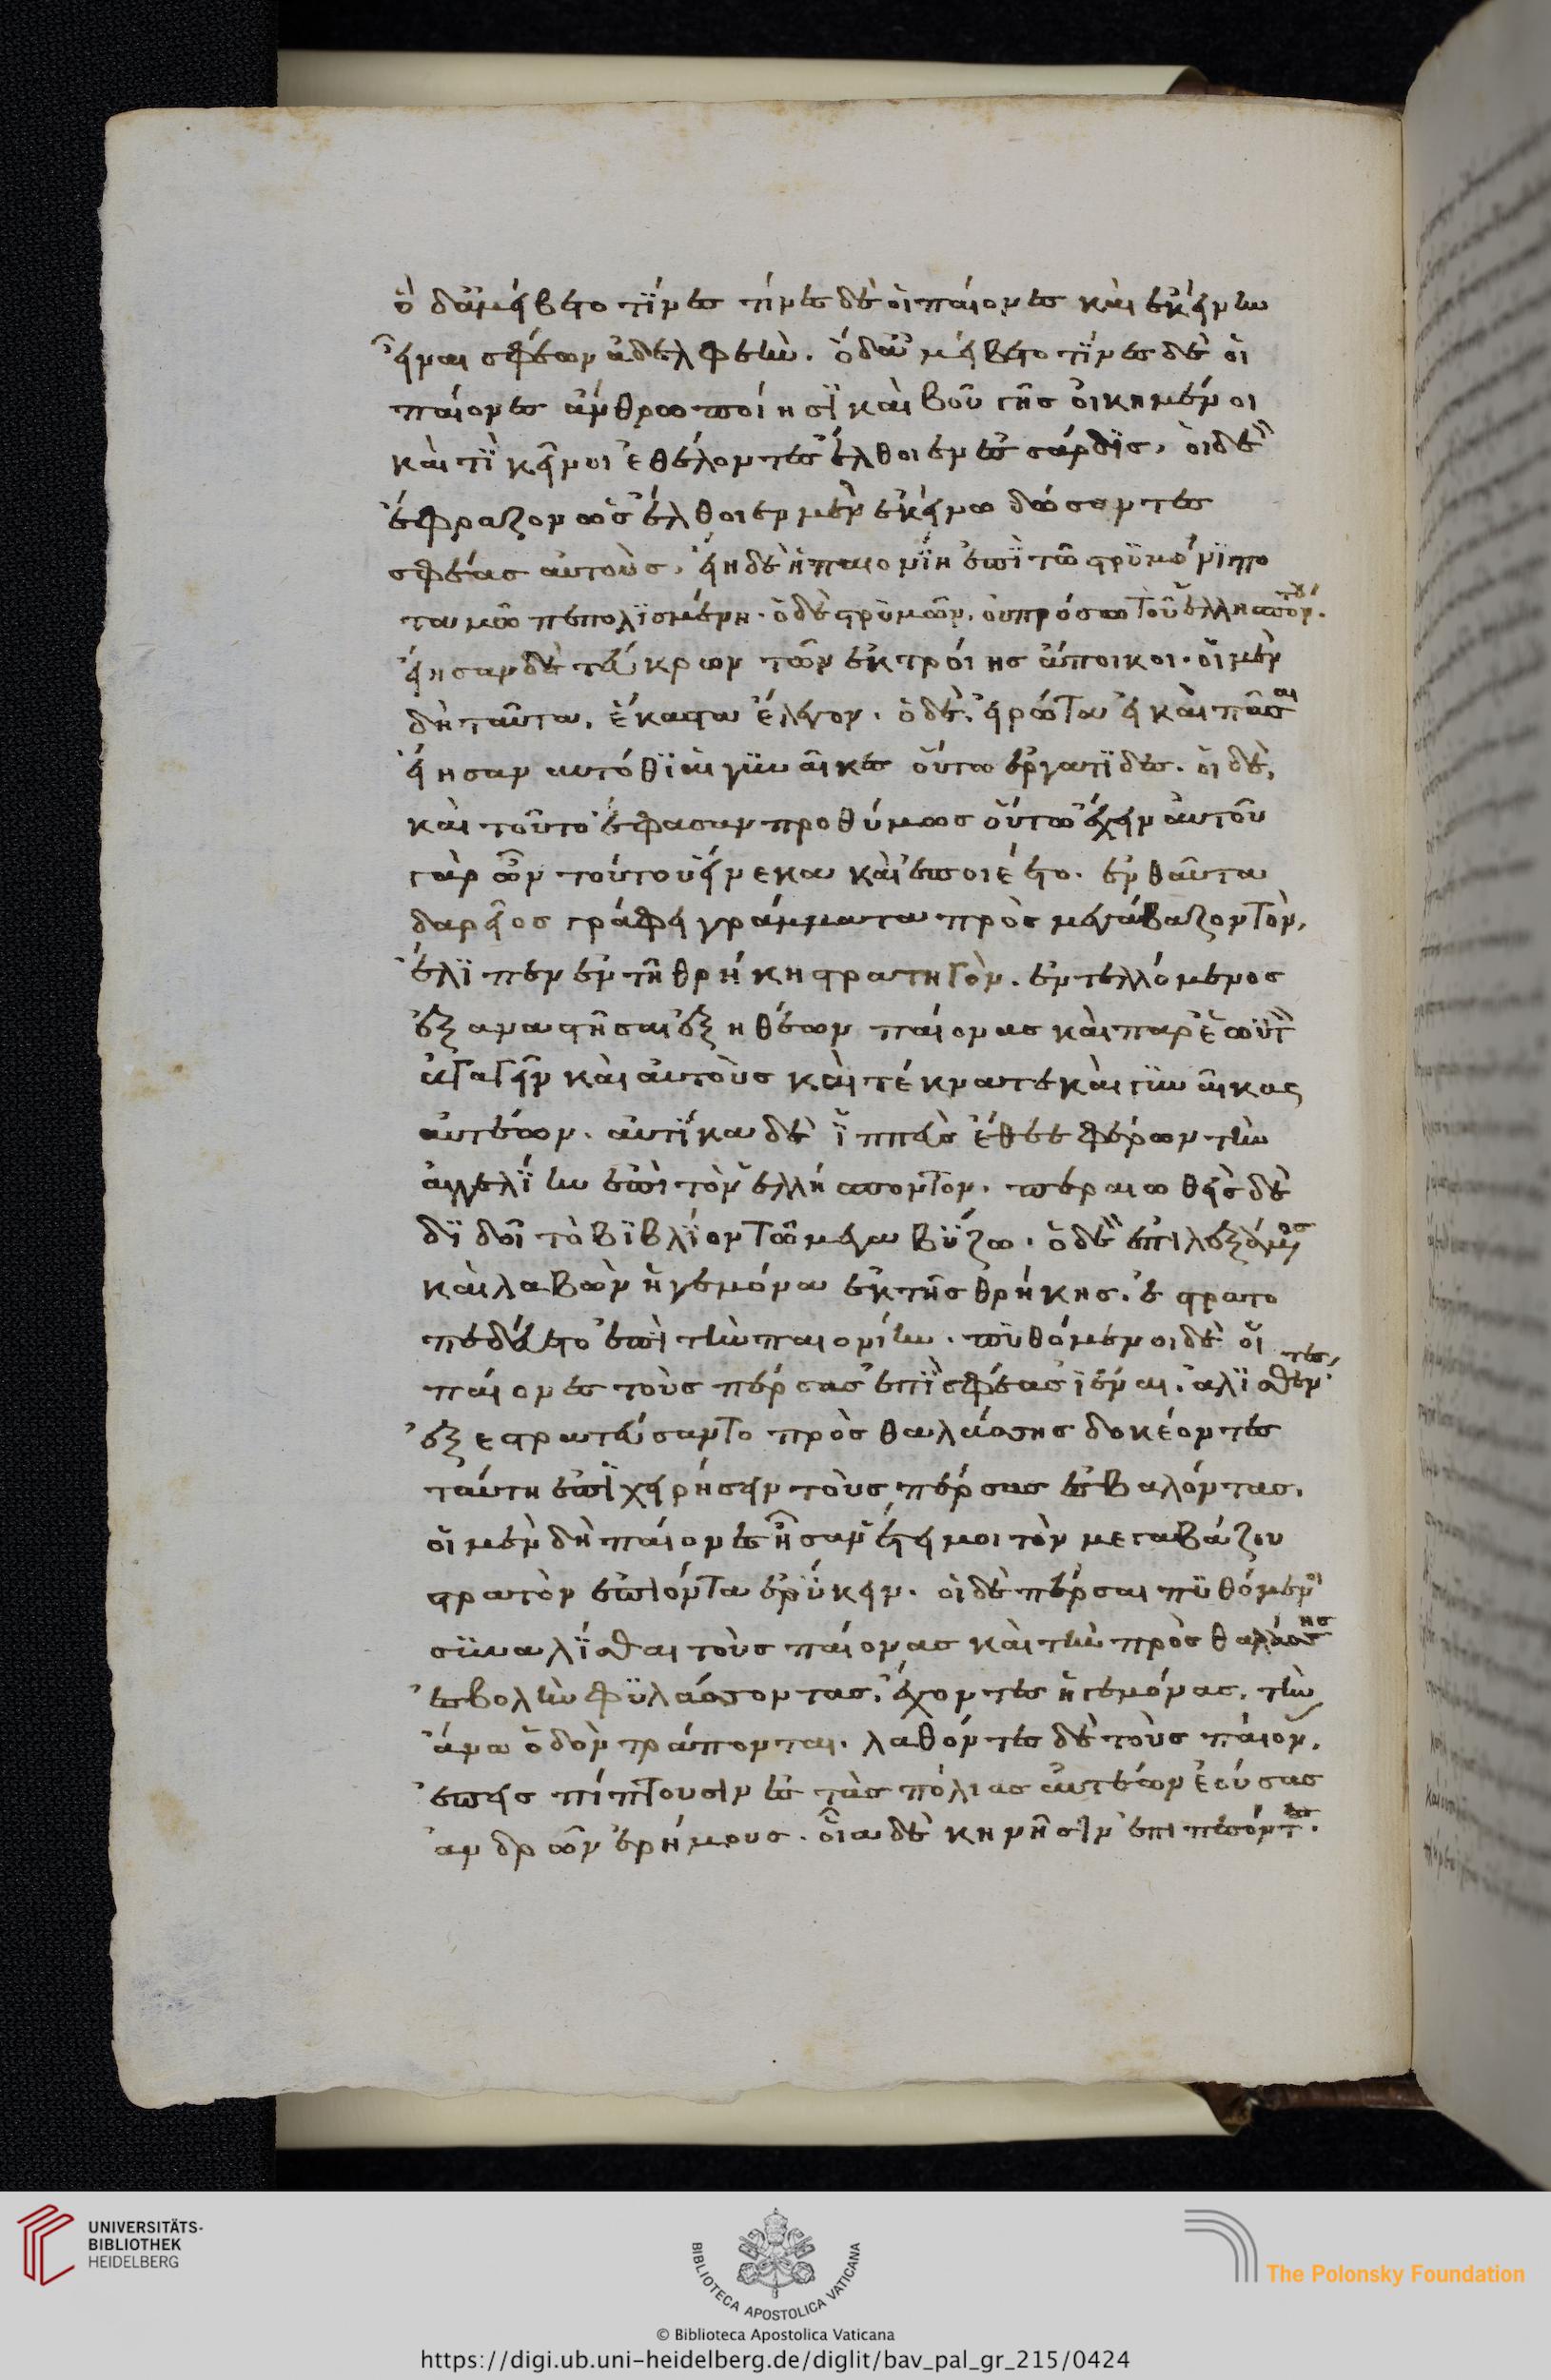 ὁ δ' ἀμείβετο τίνες τίνες δὲ οἱ παίονες καὶ ἐκείνην
εἶναι σφέων ἀδελφεήν. ὁ δ' ἀμείβετο τίνες δὲ οἱ
παίονες ἄνθρωποί ησι καὶ κοῦ γῆς οἰκημένοι
καὶ τί κεῖνοι ἐθέλοντες ἔλθοιεν ἐς σάρδις. οἱ δὲ
ἔφραζον ὡς ἔλθοιεν μὲν ἐκείνω δώσοντες
σφέας αὐτούς. εἴη δὲ ἡ παιονίη ἐπὶ τῶ στρυμόνι πο
ταμῶ πεπολισμένη. ὁ δὲ στρυμῶν, οὐ πρόσω τοῦ ἑλλησπόντου.
εἴησαν δὲ τευκρων τῶν ἐκ τροίης ἄποικοι. οἱ μὲν
δὴ ταῦτα, ἕκαστα ἔλεγον. ὁ δὲ, εἰρώτα εἰ καὶ πᾶσαι
εἴησαν αὐτόθι αἱ γυναῖκες οὕτω ἐργάτιδες. οἱ δὲ,
καὶ τοῦτο ἔφασαν προθύμως οὕτω ἔχειν αὐτοῦ
γὰρ ὦν τούτου εἵνεκα καὶ ἐποιέετο. ἐνθαῦτα
δαρεῖος γράφει γράμματα πρὸς μεγάβαζον τὸν,
ἔλιπεν ἐν τῆ θρήκη στρατηγὸν. ἐντελλόμενος
ἐξαναστῆσαι ἐξ ηθέων παίονας καὶ παρ' ἑωυτὸ
ἀγαγεῖν καὶ αὐτοὺς καὶ τέκνα τε καὶ γυναῖκας
αὐτέων. αὐτίκα δὲ ἱππεὺς ἔθεε φέρων τὴν
ἀγγελίην ἐπὶ τὸν ἑλλήσποντον. περαιωθεὶς δὲ
διδοῖ τὸ βιβλίον τῶ μεγαβύζω. ὁ δὲ ἐπιλεξάμενος
καὶ λαβὼν ἡγεμόνα ἐκ τῆς θρήκης. ἐστρατο
πεδεύετο ἐπὶ τὴν παιονίην. πυθόμενοι δὲ οἱ
παίονες τοὺς πέρσας ἐπὶ σφέας ἰέναι. ἁλισθέντες,
ἐξεστρατεύσαντο πρὸς θαλάσσης δοκέοντες
ταύτη ἐπιχειρήσειν τοὺς πέρσας ἐσβαλόντας.
οἱ μὲν δὴ παίονες ἦσαν ἕτειμοι τὸν μεταβάζου
στρατὸν ἐπιόντα ἐρύκειν. οἱ δὲ πέρσαι πυθόμενοι
συναλίσθαι τοὺς παίονας καὶ τὴν πρὸς θαλάσσης
ἐσβολὴν φυλάσσοντας. ἔχοντες ἡγεμόνας, τὴν
ἄνω ὁδὸν τράπονται. λαθόντες δὲ τοὺς παίον,
ἐπεις πίπτουσιν ἐς τὰς πόλιας αὐτέων ἐούσας
ἀνδρῶν ἐρήμους. οἷα δὲ κηνῆσιν ἐπιπεσόντες.
UNIVERSITÄTS-
BIBLIOTHEK
HEIDELBERG
BIBLIOTECA APOSTOLICA VATICANA
© Biblioteca Apostolica Vaticana
The Polonsky Foundation
https://digi.ub.uni-heidelberg.de/diglit/bav_pal_gr_215/0424